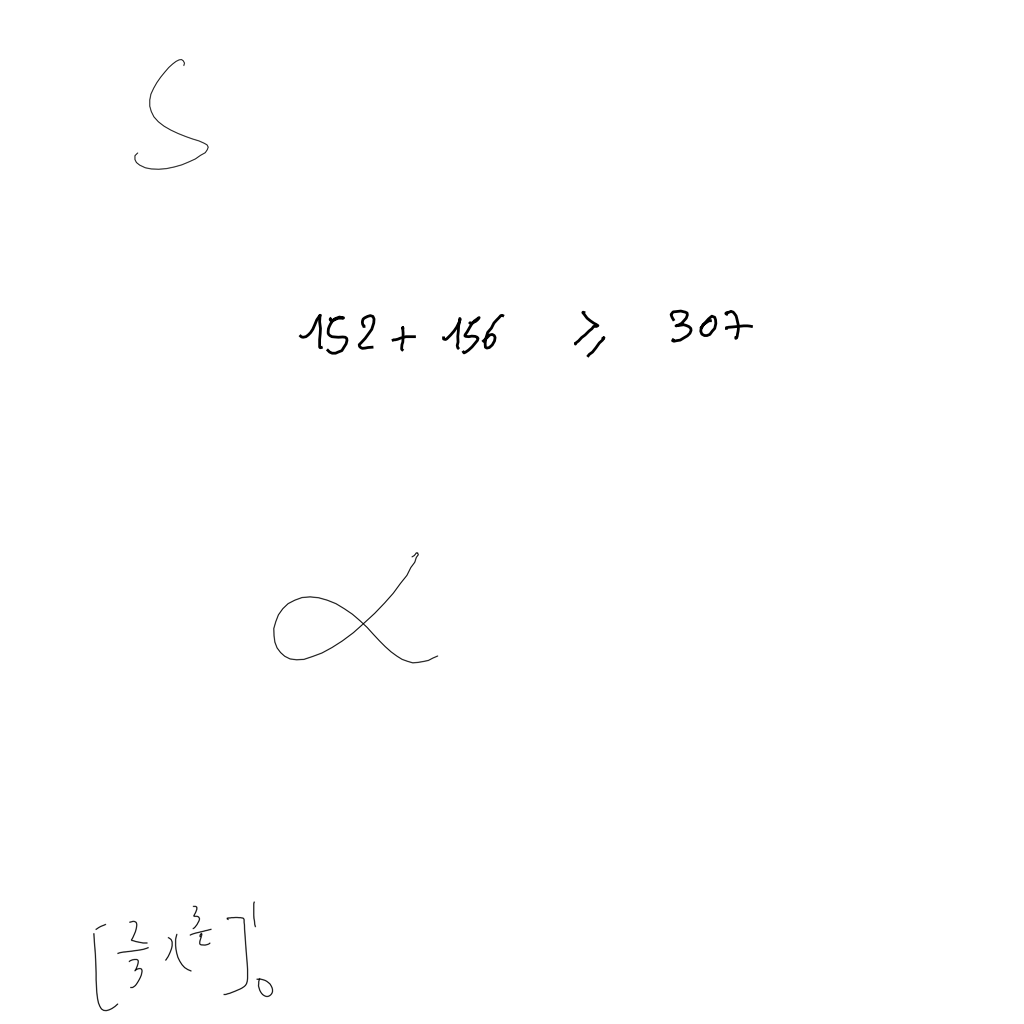 S
152 + 156 ⩾ 307
α
[2/3 x^(3/2)]_0^1